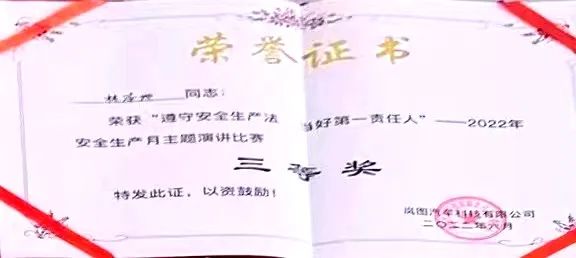 荣誉证书
林 同志:
荣获“遵守安全生产法 当好第一责任人”——2022年
安全生产月主题演讲比赛
三等奖
特发此证，以资鼓励!
岚图汽车科技有限公司
二〇二二年六月